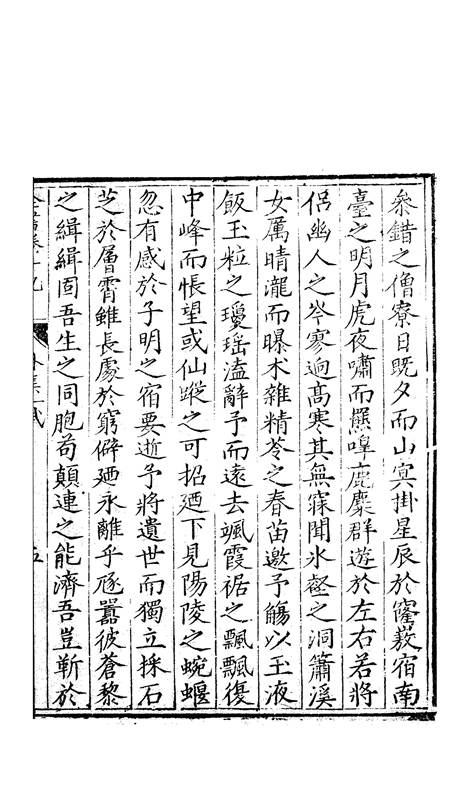 叅錯之僧寮日既夕而山㝠掛星辰於窿敖宿南
臺之明月虎夜嘯而羆嘷鹿麋群遊於左右若將
侣幽人之岑寥逈高寒其無寐聞氷壑之洞簫溪
女厲晴瀧而曝术雜精苓之春苗邀予觴以玉液
飯玉粒之瓊瑶溘辭予而遠去颯霞裾之飄飄復
中峰而悵望或仙蹤之可招廼下見陽陵之蜿蜒
忽有感於子明之宿要逝予將遺世而獨立採石
芝於層霄雖長處於窮僻廼永離乎豗囂彼蒼黎
之緝緝固吾生之同胞苟顛連之能濟吾豈靳於